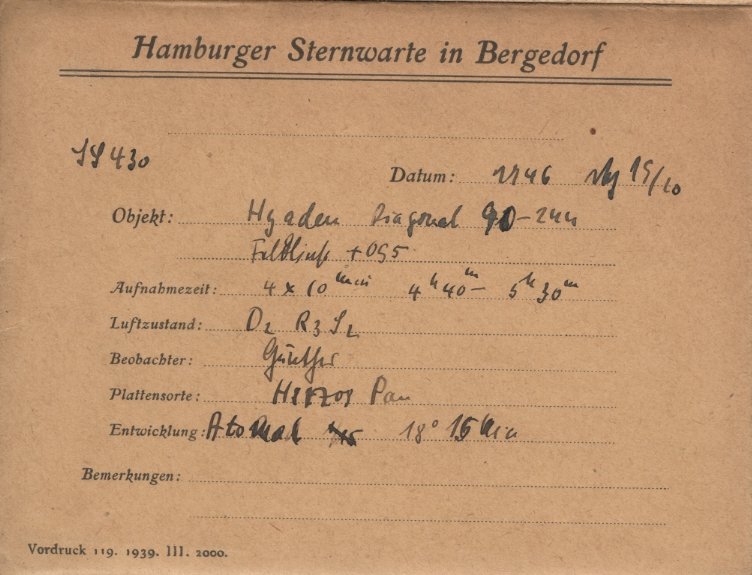 Hamburger Sternwarte in Bergedorf
430
Datum: 1946 15/20
Objekt: Hyaden Diagonal
+ OG5
Aufnahmezeit: 4 x 10 min 4h 40m - 5h 30m
Luftzustand: D2 R3 S2
Beobachter: Günther
Plattensorte: Herzog Pan
Entwicklung: Atomal 18° 15 Min
Bemerkungen:
Vordruck 119. 1939. III. 2000.